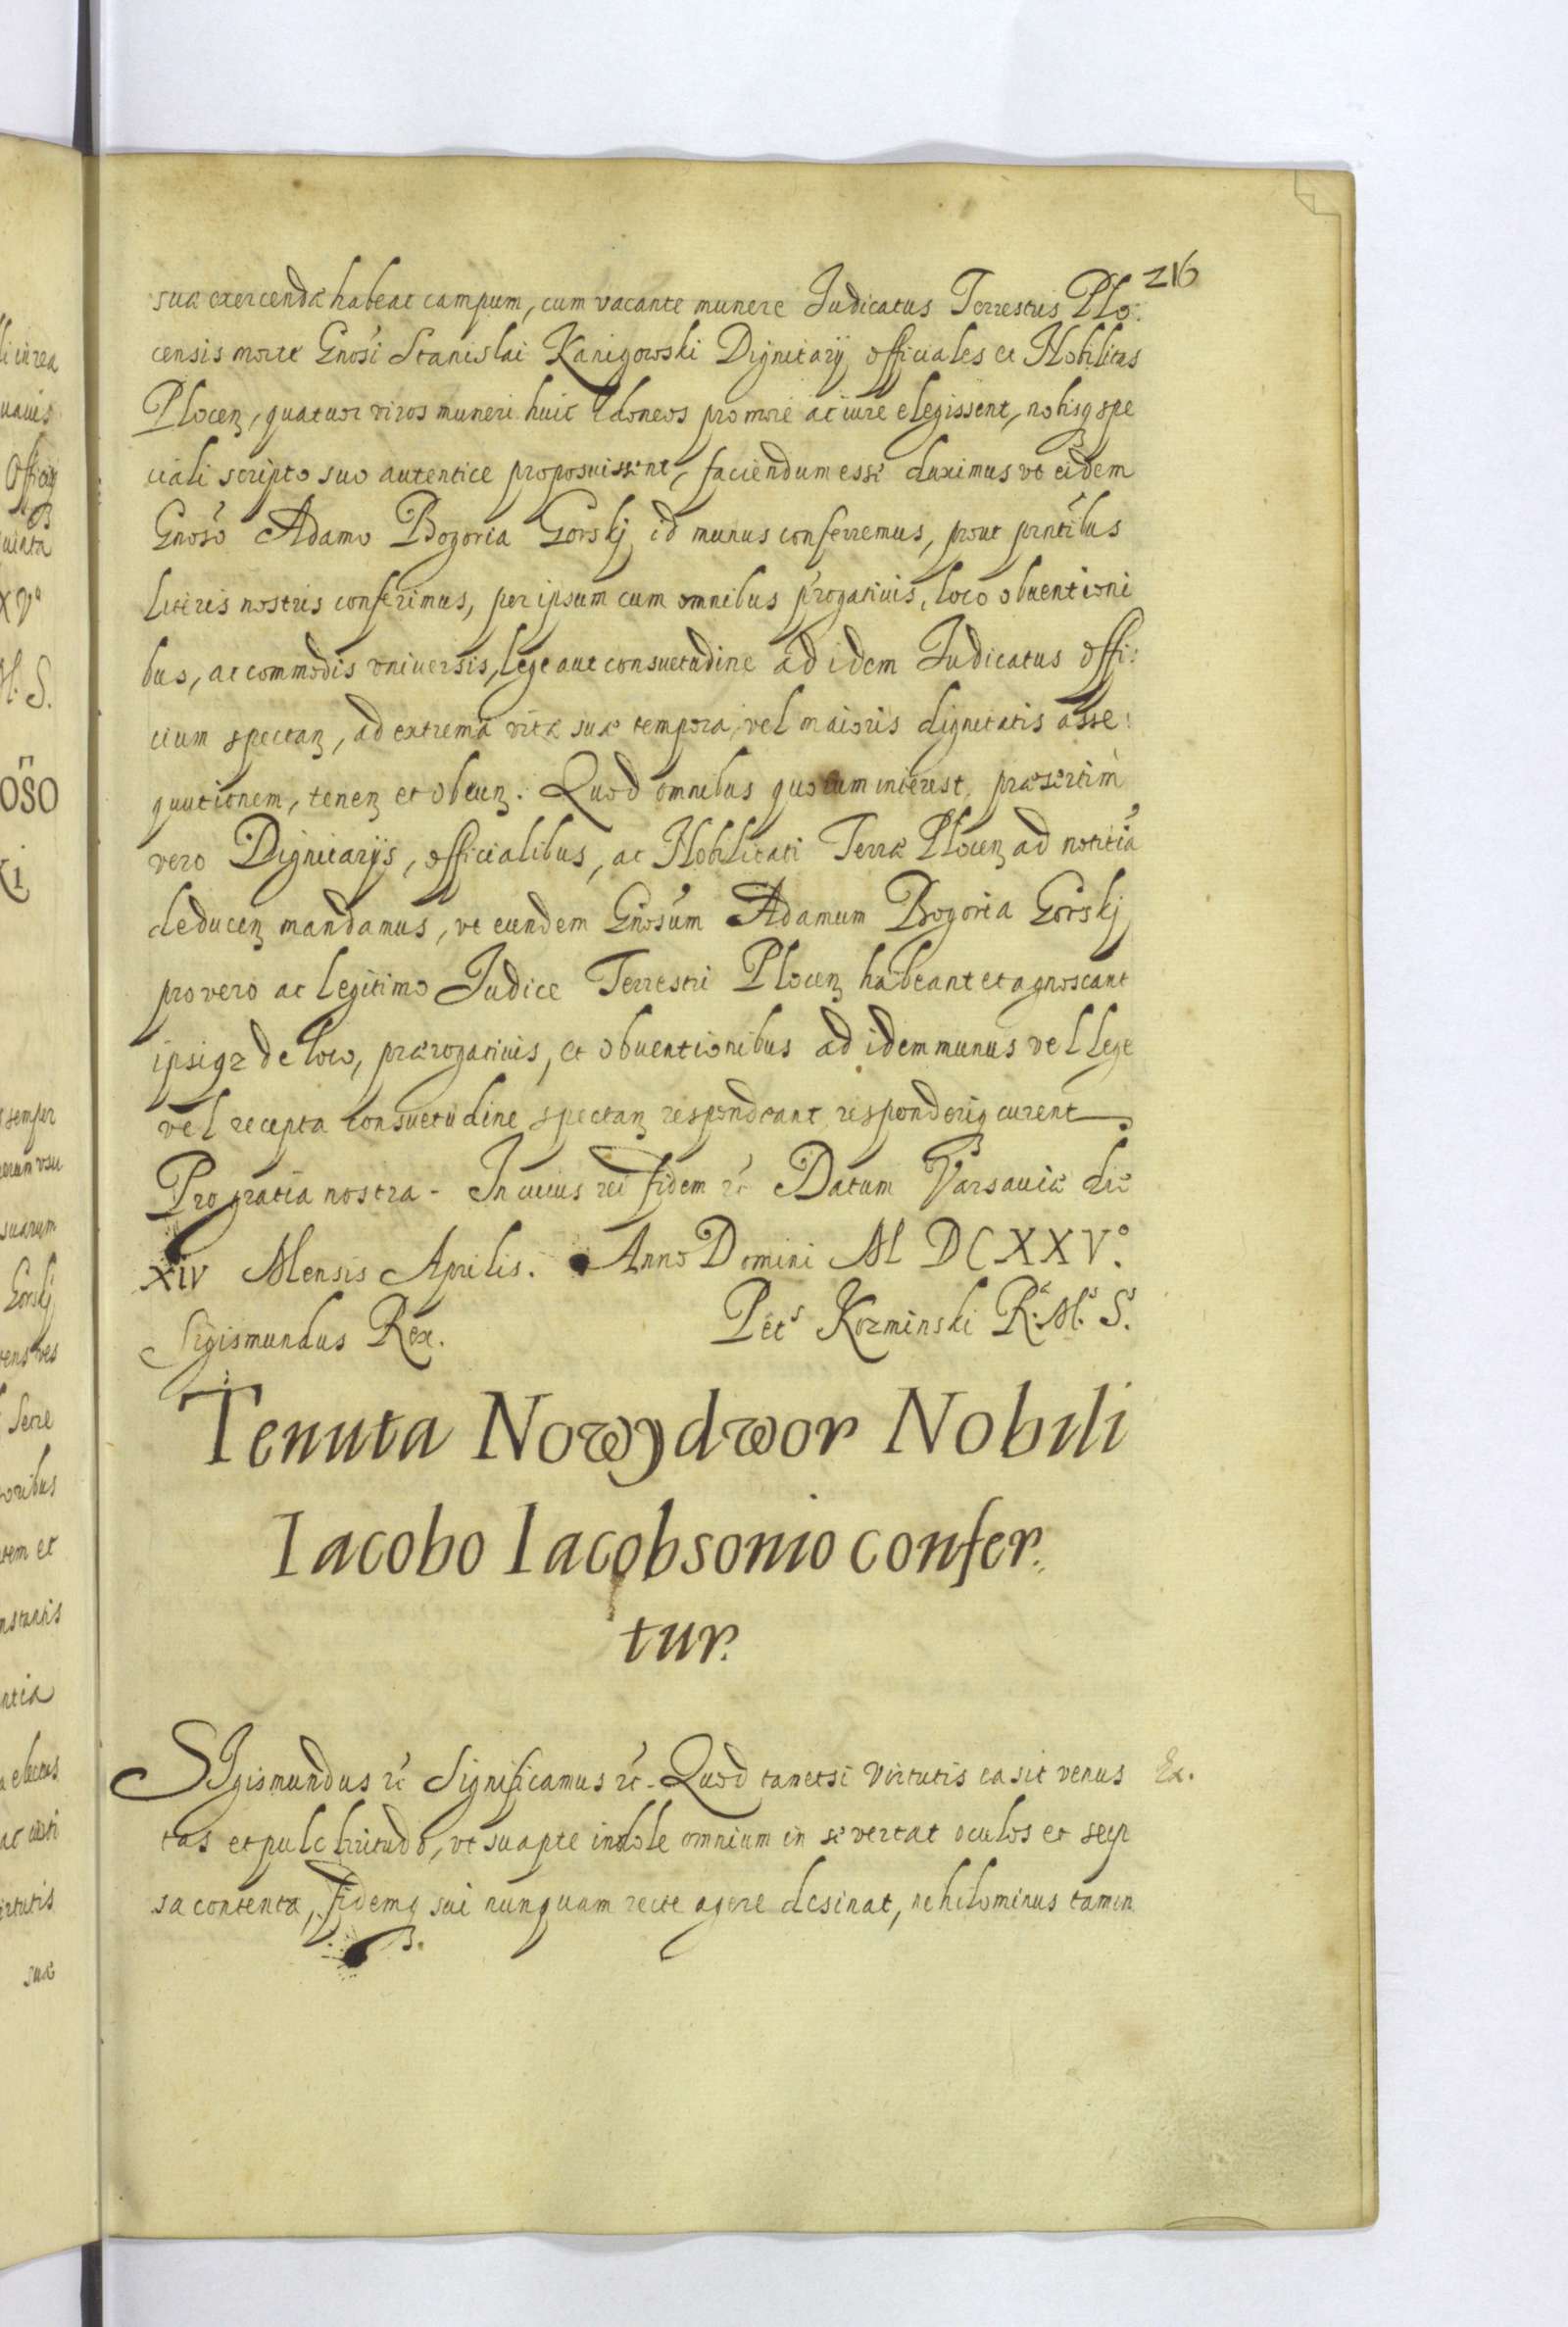 216
suæ exercendæ habeat campum, cum vacante munere Iudicatus Terrestris Plo:
censis morte Gnosi Stanislai Karigowski Dignitarij officiales et Nobilitas
Plocen, quatuor viros muneri huic idoneos pro more ac iure elegissent, nobisq spe
ciali scripto suo autentice proposuissent, faciendum esse duximus vt eidem
Gnoso Adamo Bogoria Gorskj id munus conferremus, prout pntibus
literis nostris conferimus, per ipsum cum omnibus progatiuis, loco obuentioni
bus, ac commodis vniuersis, lege aut consuetudine ad idem Iudicatus offi:
cium spectan, ad extrema vitæ suæ tempora, vel maioris dignitatis asse:
quutionem, tenen et obeun. Quod omnibus quorum interest, præsertim
vero Dignitarijs, officialibus, ac Nobilitati Terræ Plocen ad notitiā
deducen mandamus, vt eundem Gnosum Adamum Bogoria Gorskj
pro vero ac legitimo Iudice Terrestri Plocen habeant et agnoscant
ipsiq de loco, prærogatiuis, et obuentionibus ad idem munus vel lege
vel recepta consuetudine spectan respondeant responderiq curent
Pro gratia nostra - In cuius rei fidem rc Datum Varsauiæ die
XIV Mensis Aprilis. Anno Domini M DCXXV°.
Sigismundus Rex. Pets Kozminski R. M. S.
Tenuta Nowydwor Nobili
Iacobo Iacobsonio confer.
tur.
SIgismundus rc Significamus rc - Quod tametsi virtutis ea sit venus Ex.
tas et pulchritudo, vt suapte indole omnium in se vertat oculos et seip
sa contenta, fidemq sui nunquam recte agere desinat, nihilominus tamen